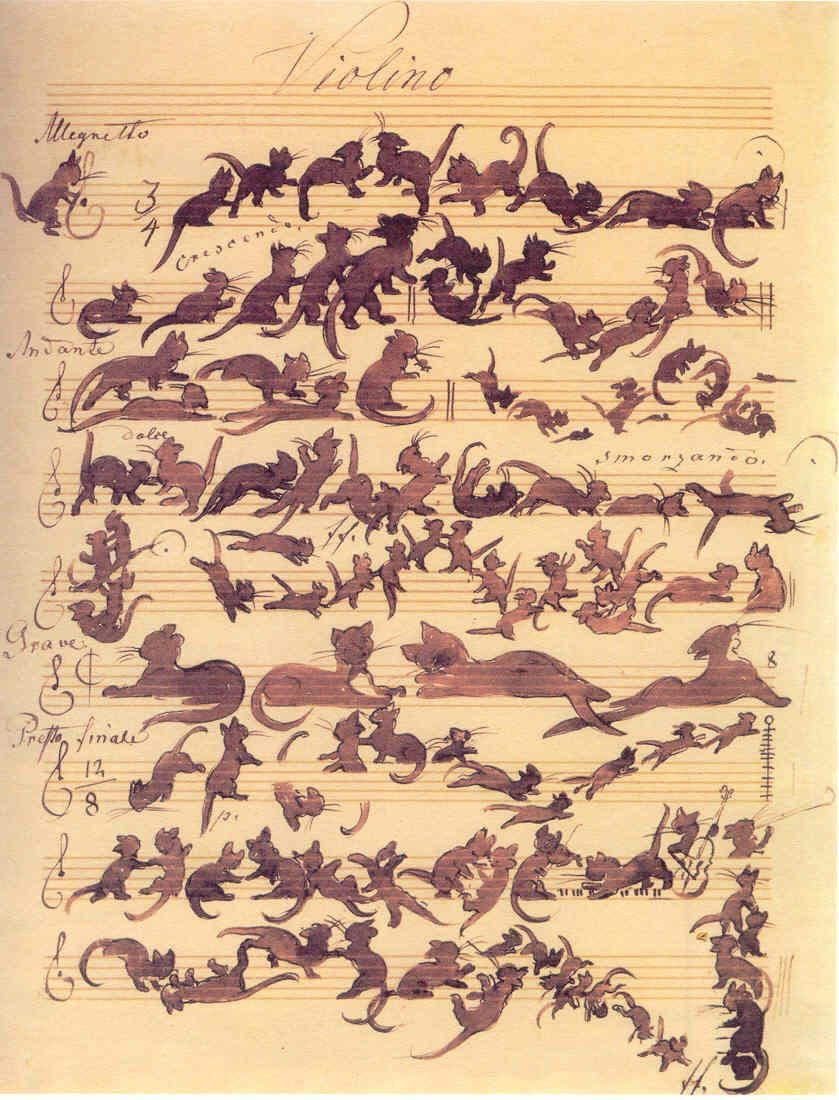 Violino
Allegretto
3
4
Crescendo.
Andante
dolce
smorzando.
ff.
Grave.
8
Presto finale
12
8
p.
ff.